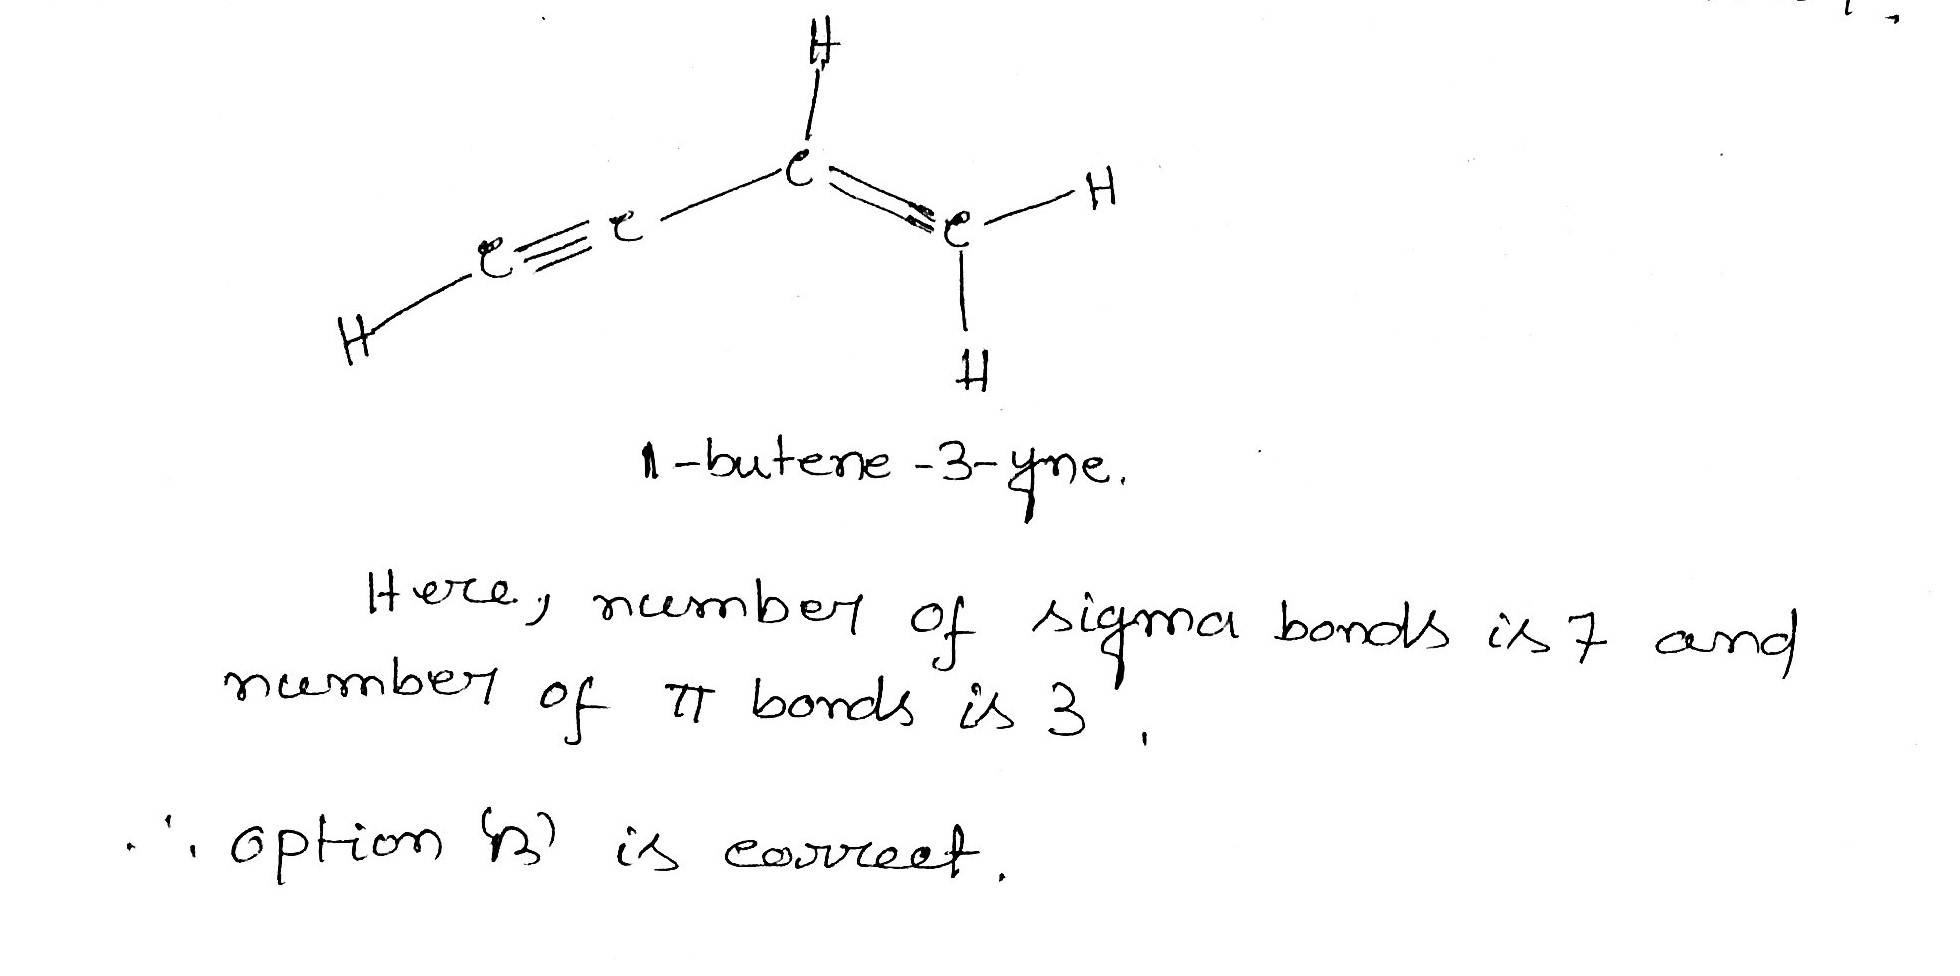 H
C
H
C
C
C
H
H
1-butene-3-yne.
Here, number of sigma bonds is 7 and
number of π bonds is 3.
∴ option 'B' is correct.